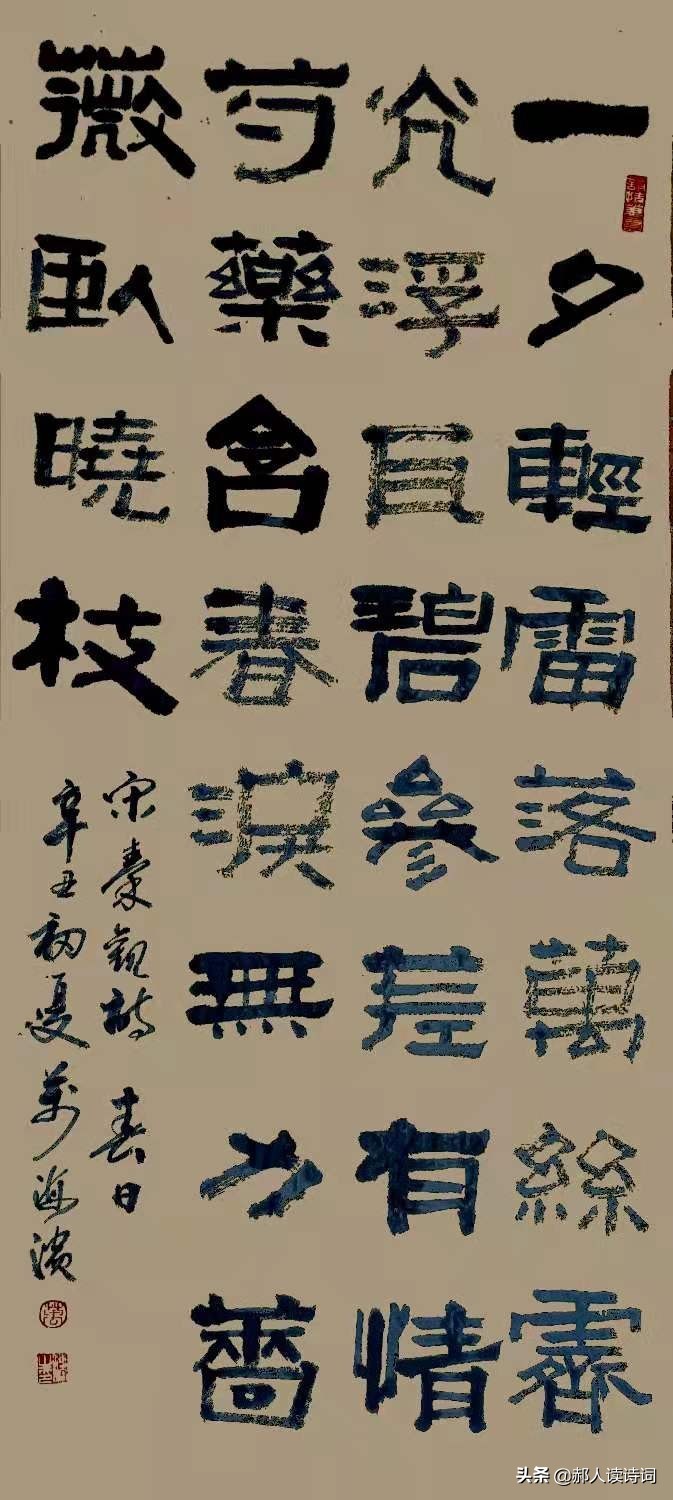 一夕輕雷落萬絲霽
光浮瓦碧參差有情
芍藥含春淚無力薔
薇臥曉枝
宋秦觀詩 春日
辛丑初夏萬海濱
头条 @郝人读诗词